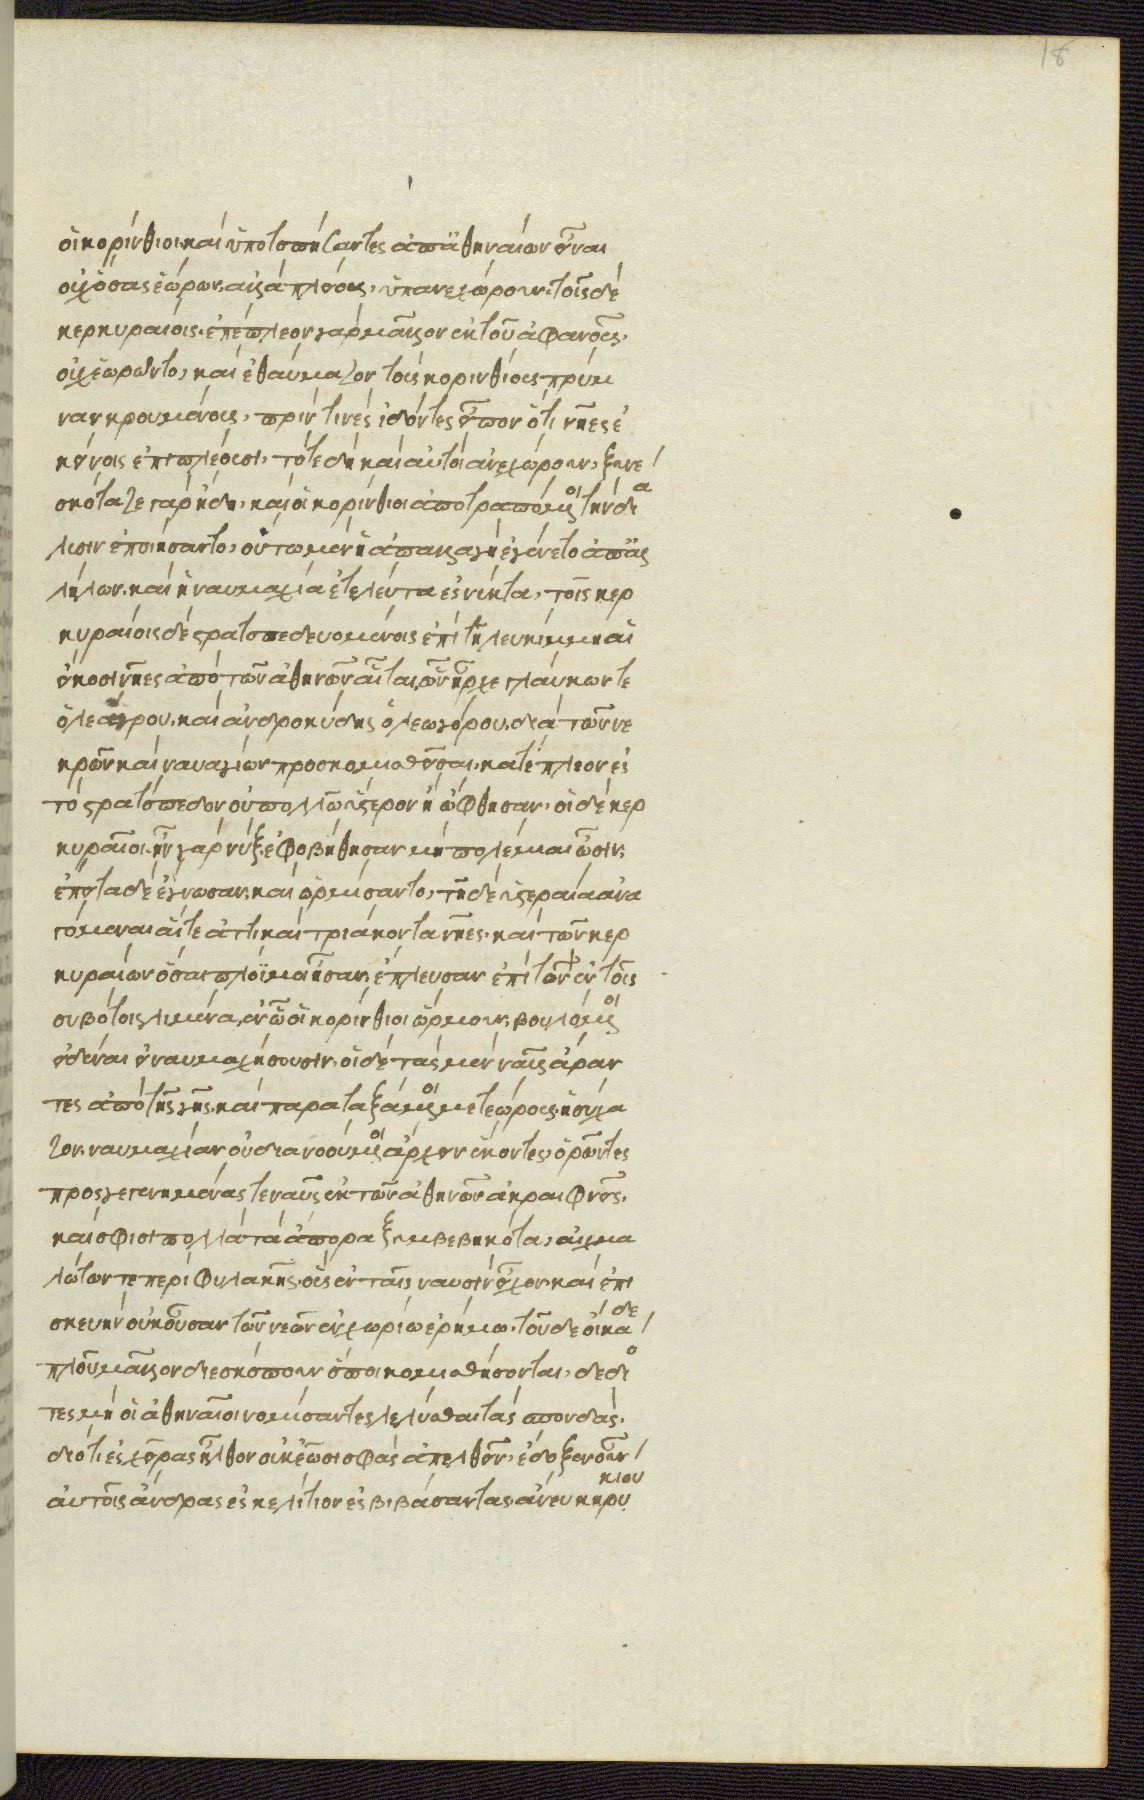 18
οἱ κορίνθιοι καὶ ὑποτοπήσαντες ἀπ' ἀθηναίων εἶναι
οὐχ ὅσας ἑώρων ἀλλὰ πλείους, ὑπανεχώρουν. τοῖς δὲ
κερκυραίοις. ἐπέπλεον γὰρ μᾶλλον ἐκ τοῦ ἀφανοῦς,
οὐχ ἑωρῶντο, καὶ ἐθαύμαζον τοὺς κορινθίους πρύμ
ναν κρουομένους, πρίν τινες ἰδόντες εἶπον ὅτι νῆες ἐ
κεῖναι ἐπιπλέουσι. τότε δὴ καὶ αὐτοὶ ἀνεχώρουν, ξυνε
σκόταζε γὰρ ἤδη, καὶ οἱ κορίνθιοι ἀποτραπόμενοι τὴν διά
λυσιν ἐποιήσαντο, οὕτω μὲν ἡ ἀπαλλαγὴ ἐγένετο ἀπ' ἀλ
λήλων. καὶ ἡ ναυμαχία ἐτελεύτα ἐς νύκτα, τοῖς κερ
κυραίοις δὲ στρατοπεδευομένοις ἐπὶ τῆ λευκίμμη αἱ
εἴκοσι νῆες ἀπὸ τῶν ἀθηνῶν αὗται, ὧν ἦρχε γλαύκων τε
ὁ λεάγρου. καὶ ἀνδοκίδης ὁ λεωγόρου. διὰ τῶν νε
κρῶν καὶ ναυαγίων προσκομισθεῖσαι. κατέπλεον ἐς
τὸ στρατόπεδον οὐ πολλῶ ὕστερον ἢ ὤφθησαν. οἱ δὲ κερ
κυραῖοι. ἦν γὰρ νύξ, ἐφοβήθησαν μὴ πολέμιαι ὦσιν,
ἔπειτα δὲ ἔγνωσαν, καὶ ὡρμίσαντο, τῆ δὲ ὑστεραία ἀνα
γόμεναι αἵ τε ἀττικαὶ τριάκοντα νῆες. καὶ τῶν κερ
κυραίων ὅσαι πλόϊμοι ἦσαν, ἔπλευσαν ἐπὶ τὸν ἐν τοῖς
συβότοις λιμένα, ἐν ὧ οἱ κορίνθιοι ὥρμουν, βουλόμενοι
εἰδέναι εἰ ναυμαχήσουσιν. οἱ δὲ τὰς μὲν ναῦς ἄραν
τες ἀπὸ τῆς γῆς. καὶ παραταξάμενοι μετεώρους, ἡσύχα
ζον, ναυμαχίαν οὐ διανοούμενοι ἄρχειν ἑκόντες, ὁρῶντες
προσγεγενημένας τε ναῦς ἐκ τῶν ἀθηνῶν ἀκραιφνεῖς,
καὶ σφίσι πολλὰ τὰ ἄπορα ξυμβεβηκότα, αἰχμα
λώτων τε περὶ φυλακῆς. οὓς ἐν ταῖς ναυσὶν εἶχον. καὶ ἐπι
σκευὴν οὐκ οὖσαν τῶν νεῶν ἐν χωρίω ἐρήμω. τοῦ δὲ οἴκαδε
πλοῦ μᾶλλον διεσκόπουν ὅποι κομισθήσονται, δεδιό
τες μὴ οἱ ἀθηναῖοι νομίσαντες λελύσθαι τὰς σπονδάς.
διότι ἐς χεῖρας ἦλθον οὐκ ἐῶσι σφᾶς ἀπελθεῖν. ἔδοξεν οὖν
αὐτοῖς ἄνδρας ἐς κελήτιον ἐσβιβάσαντας, ἄνευ κηρυκίου